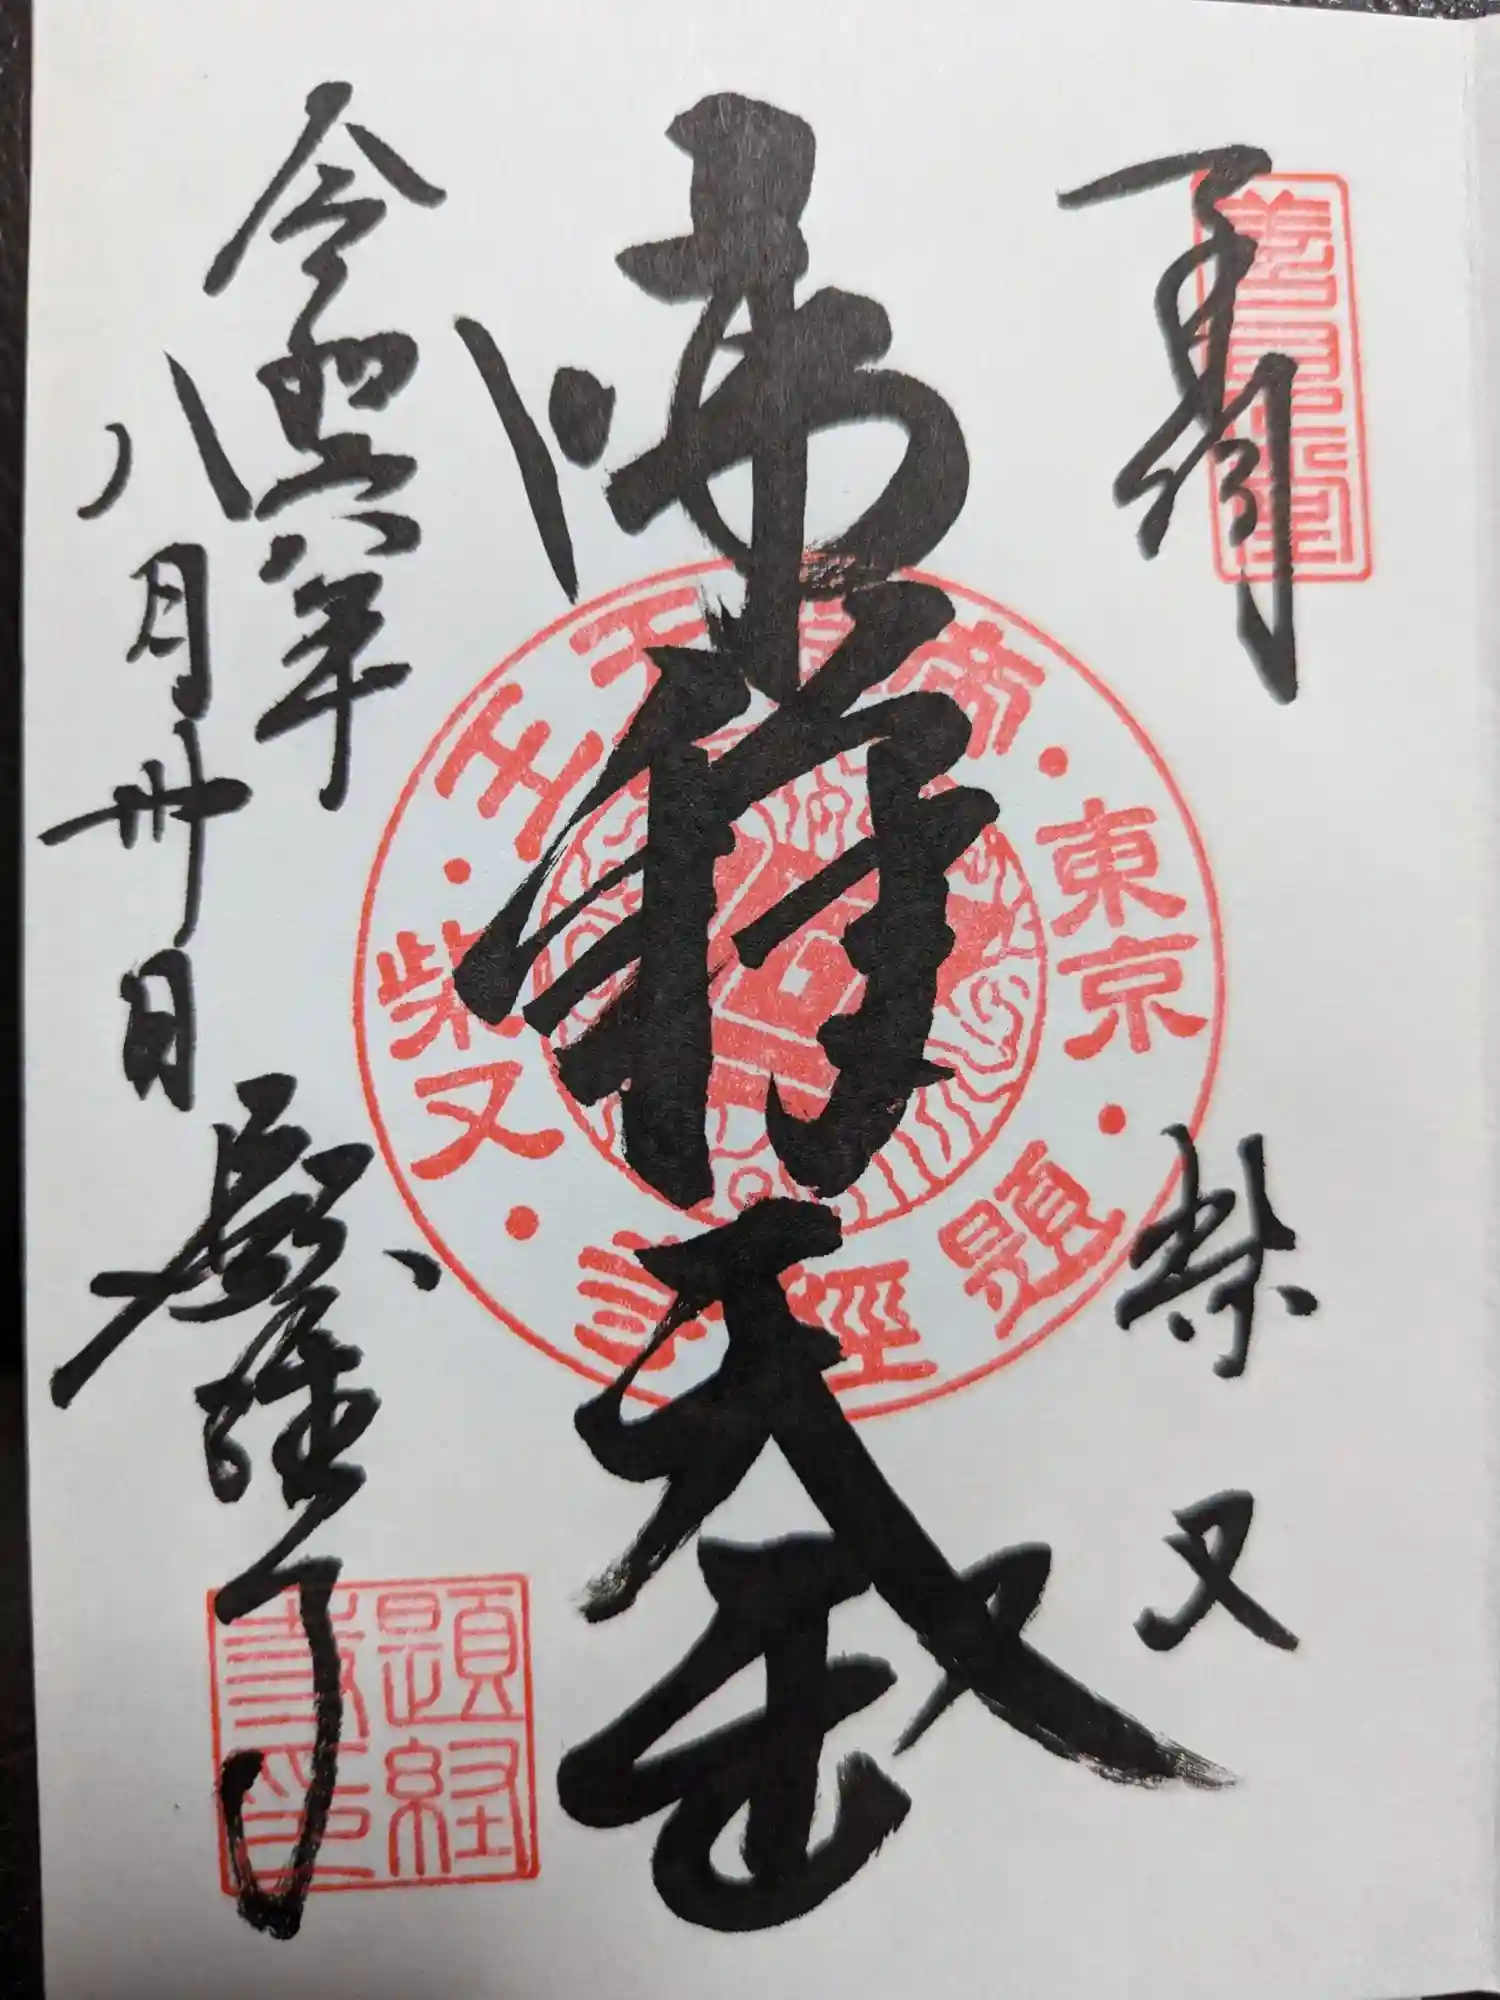 柴又
帝釈天王
令和六年
八月卅日
題経寺
東京
柴又
帝釈天王
題經寺
題経寺印